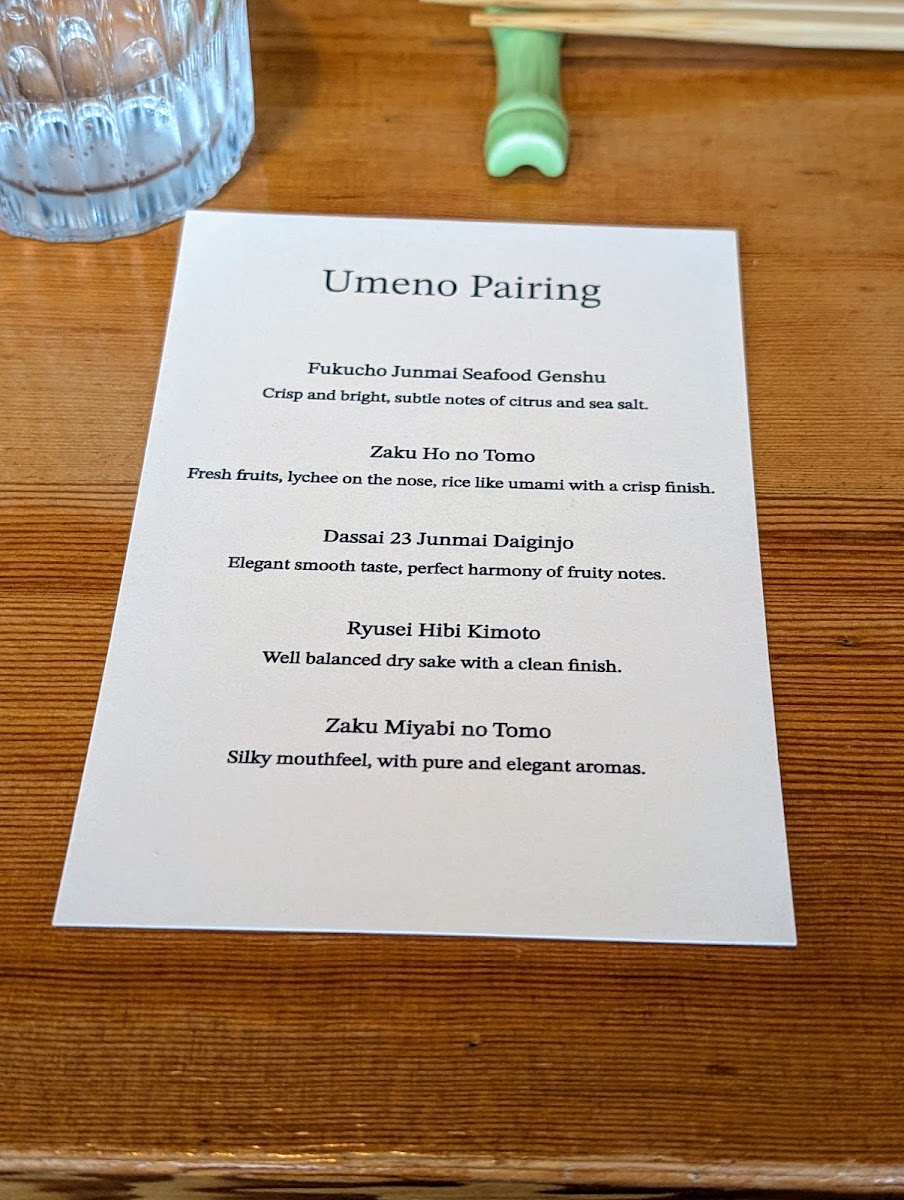 Umeno Pairing
Fukucho Junmai Seafood Genshu
Crisp and bright, subtle notes of citrus and sea salt.
Zaku Ho no Tomo
Fresh fruits, lychee on the nose, rice like umami with a crisp finish.
Dassai 23 Junmai Daiginjo
Elegant smooth taste, perfect harmony of fruity notes.
Ryusei Hibi Kimoto
Well balanced dry sake with a clean finish.
Zaku Miyabi no Tomo
Silky mouthfeel, with pure and elegant aromas.